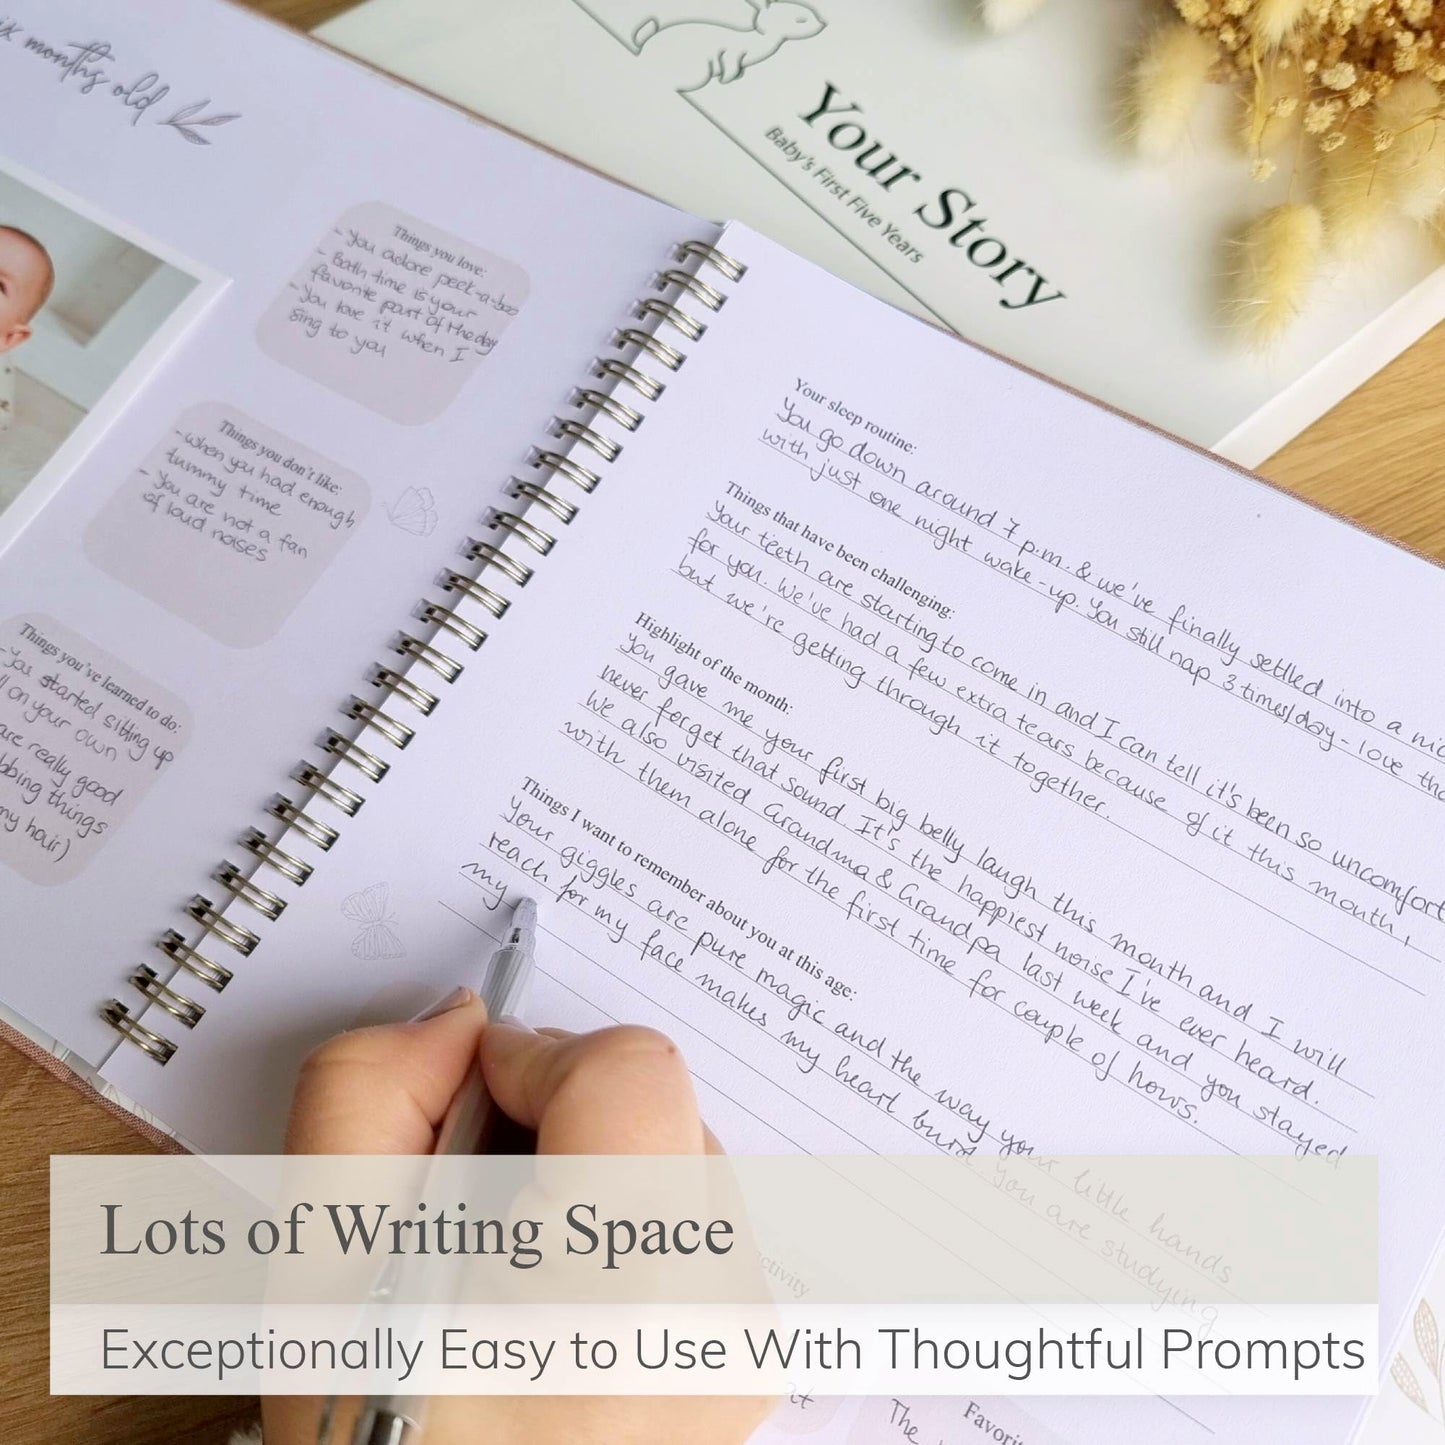 months old
Things you love:
- You adore peek-a-boo
- Bath time is your
favorite part of the day
- You love it when I
sing to you
Things you don't like:
- When you had enough
tummy time
- You are not a fan
of loud noises
Things you've learned to do:
- You started sitting up
on your own
are really good
things
my hair)
Your Story
Baby's First Five Years
Your sleep routine:
You go down around 7 p.m. & we've finally settled into a
with just one night wake-up. You still nap 3 times/day - love
Things that have been challenging:
Your teeth are starting to come in and I can tell it's been so
for you. We've had a few extra tears because of it this month,
but we're getting through it together.
Highlight of the month:
You gave me your first big belly laugh this month and I will
never forget that sound. It's the happiest noise I've ever heard.
We also visited Grandma & Grandpa last week and you stayed
with them alone for the first time for couple of hours.
Things I want to remember about you at this age:
Your giggles are pure magic and the way your little hands
reach for my face makes my heart burst. You are studying
my
Lots of Writing Space
activity
Exceptionally Easy to Use With Thoughtful Prompts
at
The